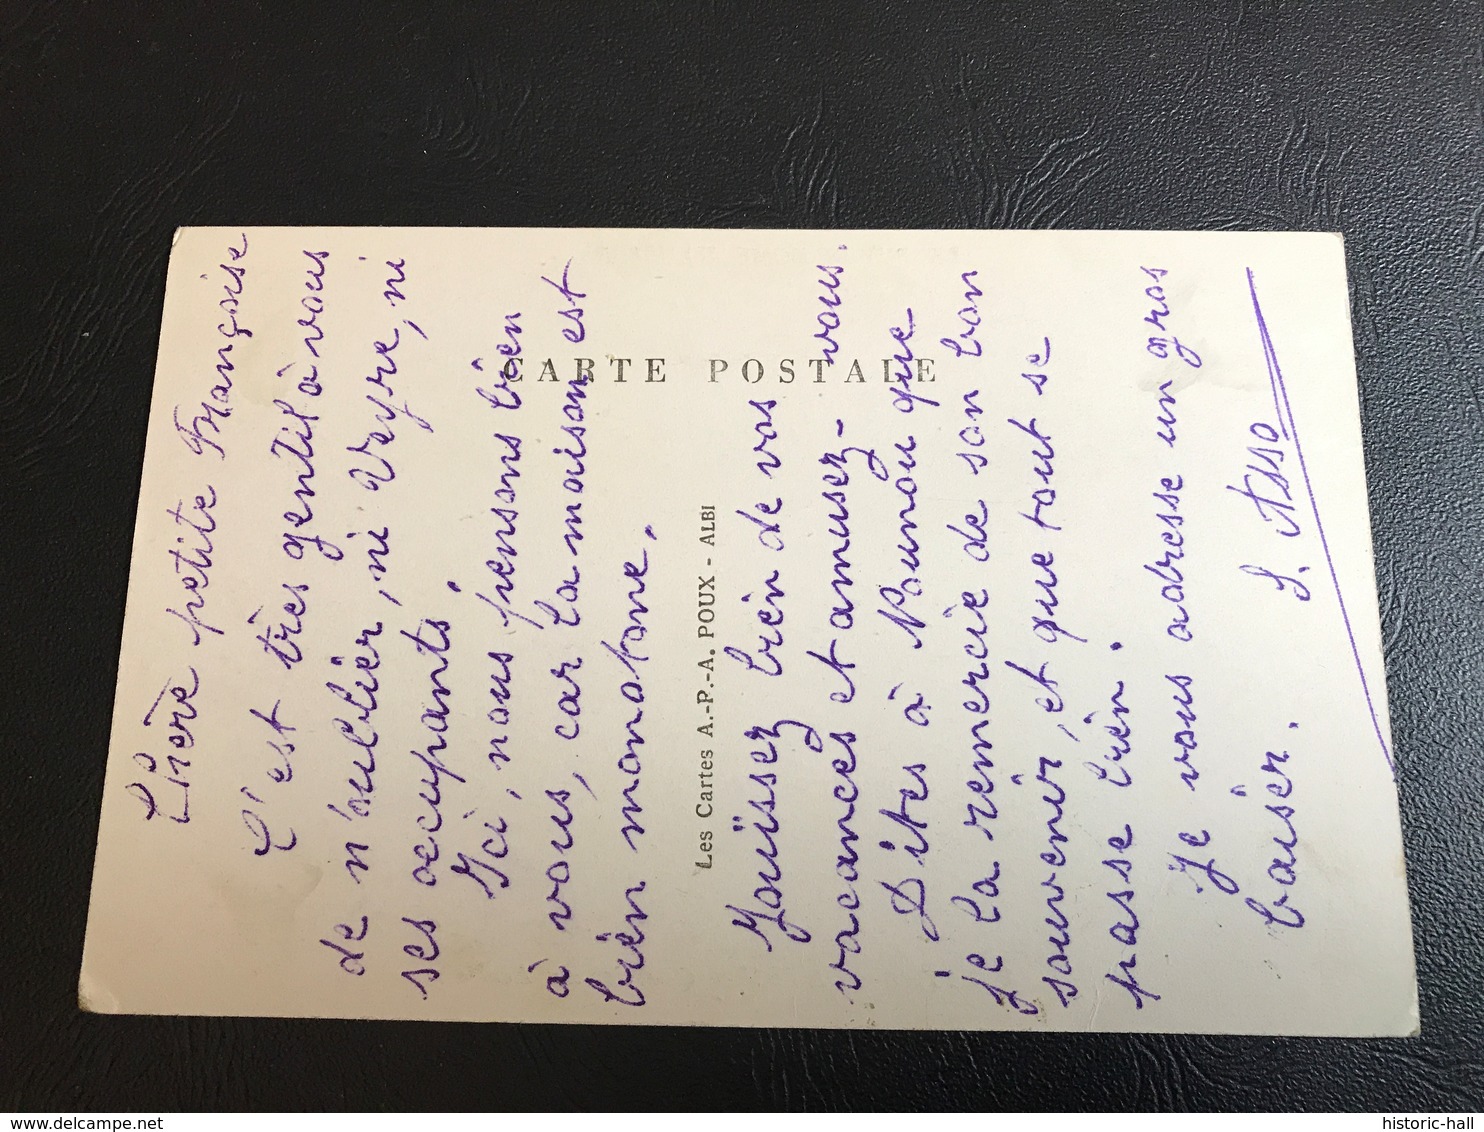 Chère petite Françoise
C'est très gentil à vous
de n'oublier, ni Veyre, ni
ses occupants.
Ici, nous pensons bien
à vous, car la maison est
bien monotone.
CARTE POSTALE
Les Cartes A.-P.-A. POUX - ALBI
Jouissez bien de vos
vacances et amusez-vous.
Dites à Nounou que
je la remercie de son bon
souvenir, et que tout se
passe bien.
Je vous adresse un gros
baiser.
historic-hall